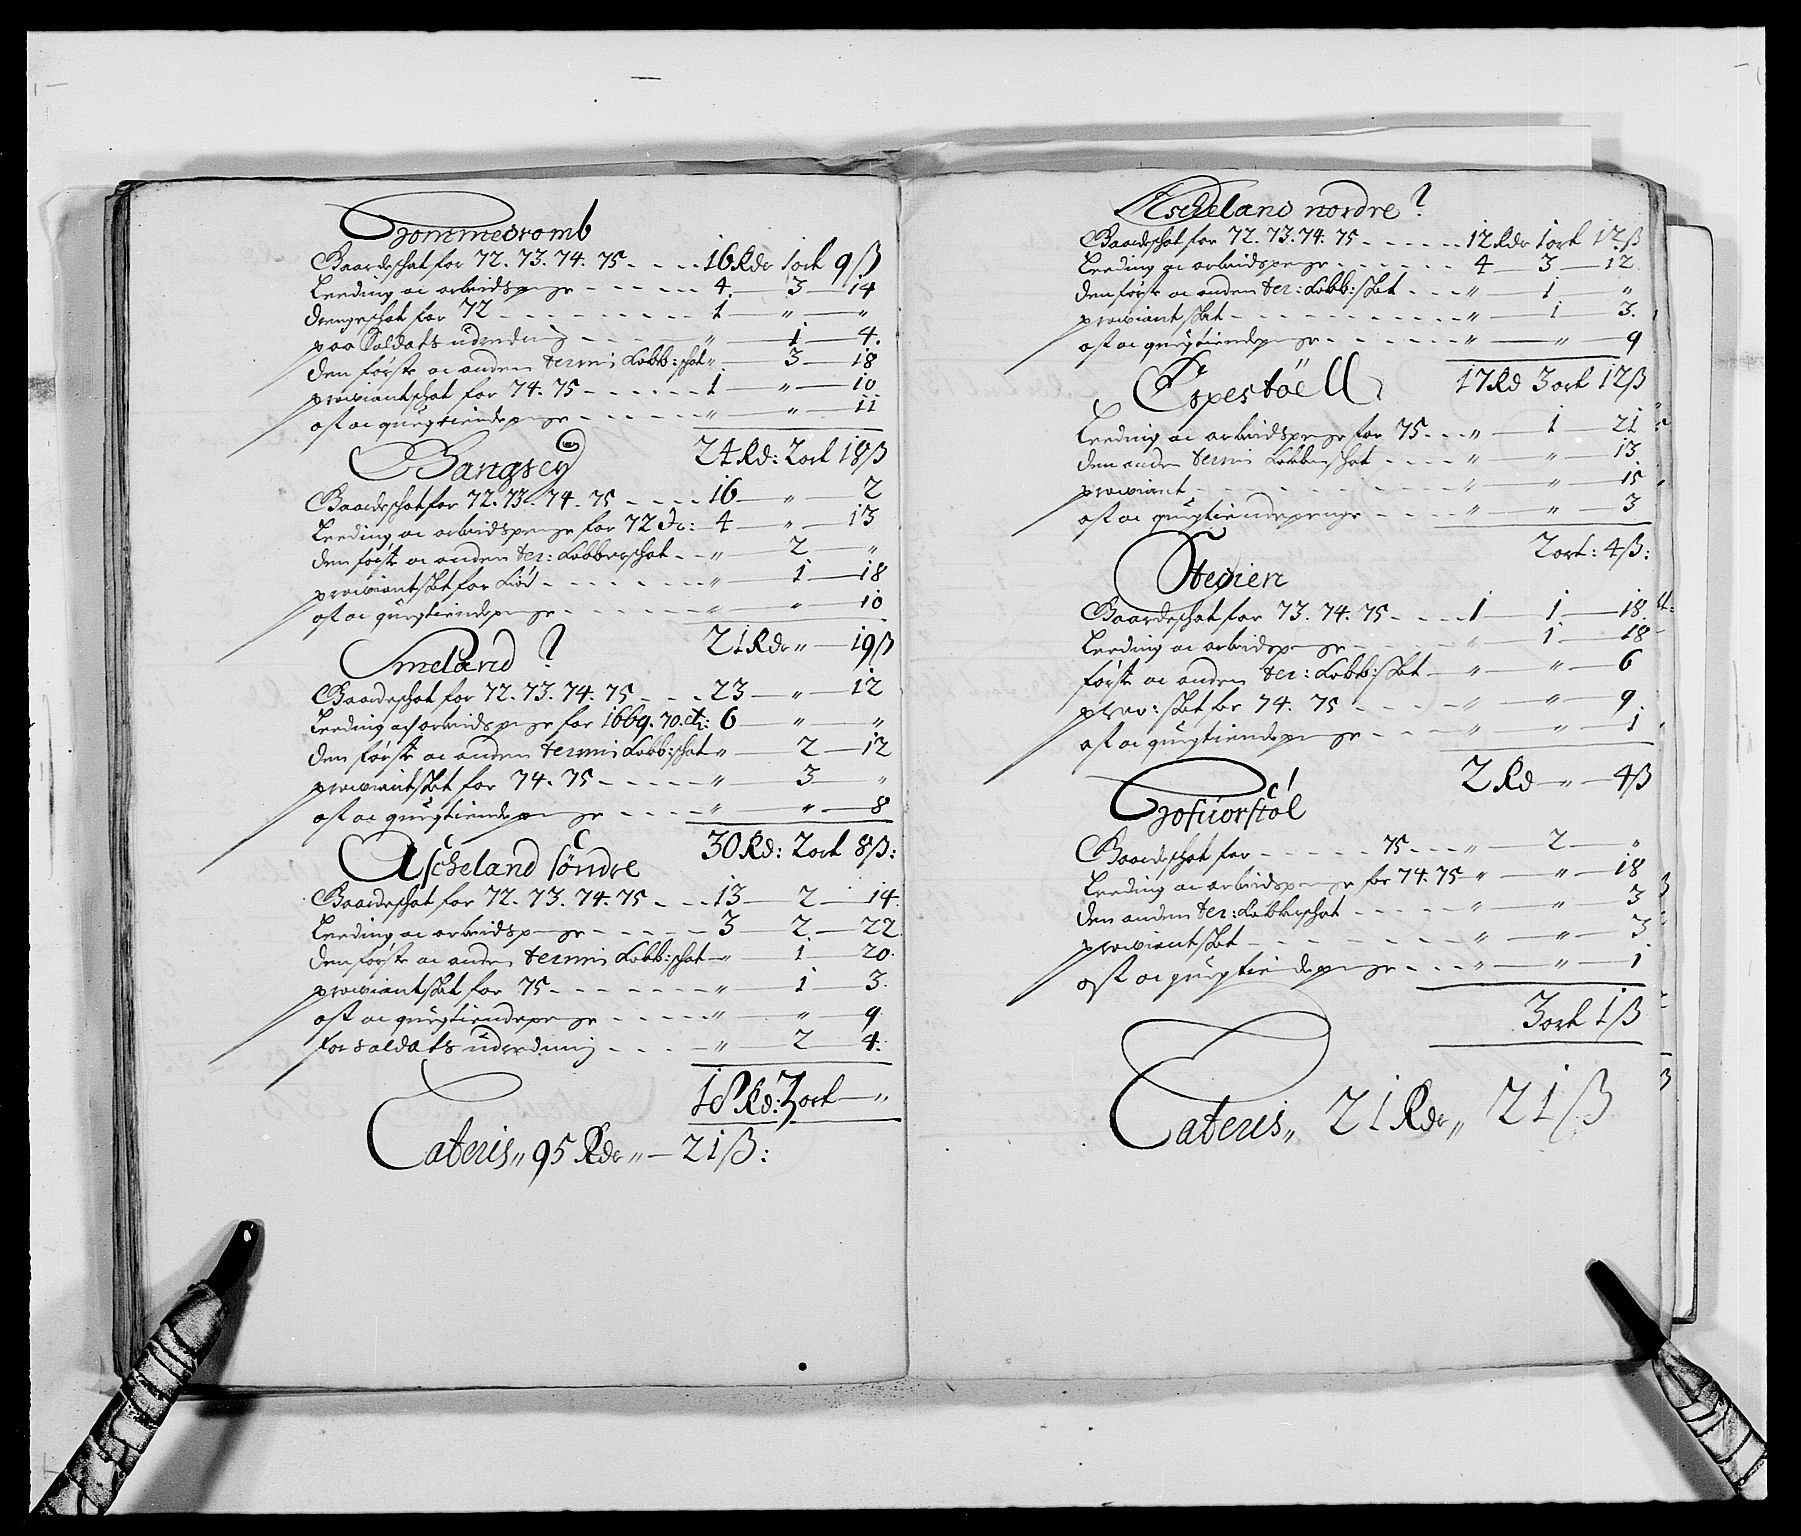 Gommedromb
Gaardschat for 72. 73. 74. 75 - - - - 16 Rdr 1 ort 9 ß
Leeding oc arbeidspenge - - - - - 4 — 3 — 14
drengeschat for 72 - - - - - - - - 1 — „ — „
paa Soldats udreding - - - - - „ — 1 — 4.
den første oc anden termi Kobb: schat „ 3 — 18
proviantschat for 74. 75 - - - - - - 1 — „ — 10
ost oc qvegtiendepenge - - - - - „ — „ — 11
24 Rd: 2 ort 18 ß
Bangsey
Gaardschat for 72. 73. 74. 75 - - - - 16 — „ — 2
Leeding oc arbeidspenge for 72 &c: 4 — „ — 13
den første oc anden ter: Kobberschat - - „ — 2 — „
proviant skat for - - - - - - „ — 1 — 18
ost oc qvegtiendepenge - - - - - - „ — „ — 10
21 Rdr „ — 19 ß
Smeland
Gaardeschat for 72. 73. 74. 75 - - - - 23 — „ — 12
Leeding oc arbeidspenge for 1669. 70. etc: 6 — „ — „
den første oc anden termi Kobb: schat „ — 2 — 12
proviant skat for 74. 75 - - - - - - „ — 3 — „
ost oc qvegtiendepenge - - - - „ — „ — 8
30 Rd: 2 ort 8 ß:
Ascheland søndre
Gaardeschat for 72. 73. 74. 75 - - - 13 — 2 — 14.
Leeding oc arbeidspenge - - - - - - 3 — 2. — 22
den første oc anden termi Kobb: schat — „ — 1 — 20.
proviant skat for 75 - - - - - - - - „ — 1 — 3.
ost oc qvegtiendepenge - - - - - „ — „ — 9
for soldats udreding - - - - „ — 2 — 4.
18 Rd: 3 ort — „
Lateris „ 95 Rdr „ — 21 ß:
Ascheland nordre
Gaardschat for 72. 73. 74. 75 - - - - - - 12 Rdr 1 ort 12 ß
Leeding oc arbeidspenge - - - - - - 4 — 3 — 12
den første oc anden ter: Kobb: skat - - - „ — 1 — „
proviant skat - - - - - - - - - - „ — 1 — 3.
ost oc qvegtiendepenge - - - - - - „ — „ — 9
17 Rd 3 ort 12 ß
Espestøell
Leeding oc arbeidspenge for 75 - - - „ — 1 — 21
den anden termi Kobberschat - - - - „ — „ — 13.
proviant - - - - - - - - - - „ — „ — 15
ost oc qvegtiendepenge - - - - „ — „ — 3
2 ort: 4 ß:
Stedien
Gaardeschat for 73. 74. 75 - - - - 1 — 1 — 18.
Leeding oc arbeidspenge - - - - - „ — 1 — 18
første oc anden ter: Kobb: skat - - „ — „ — 6
prov: skat for 74. 75 - - - - - „ — „ — 9.
ost oc qvegtiendepenge - - - - „ — „ — 1
2 Rd — „ — 4 ß
Gaardeschat for - - - - - 75 - - - „ — 2 — „
Leeding oc arbeidspenge for 74. 75 — „ — „ — 18
den anden ter: Kobberschat - - - - - „ — „ — 3
proviant skat - - - - - - - - „ — „ — 3
ost oc qvegtiendepenge - - - - „ — „ — 1
3 ort 1 ß
Lateris „ 21 Rdr „ 21 ß